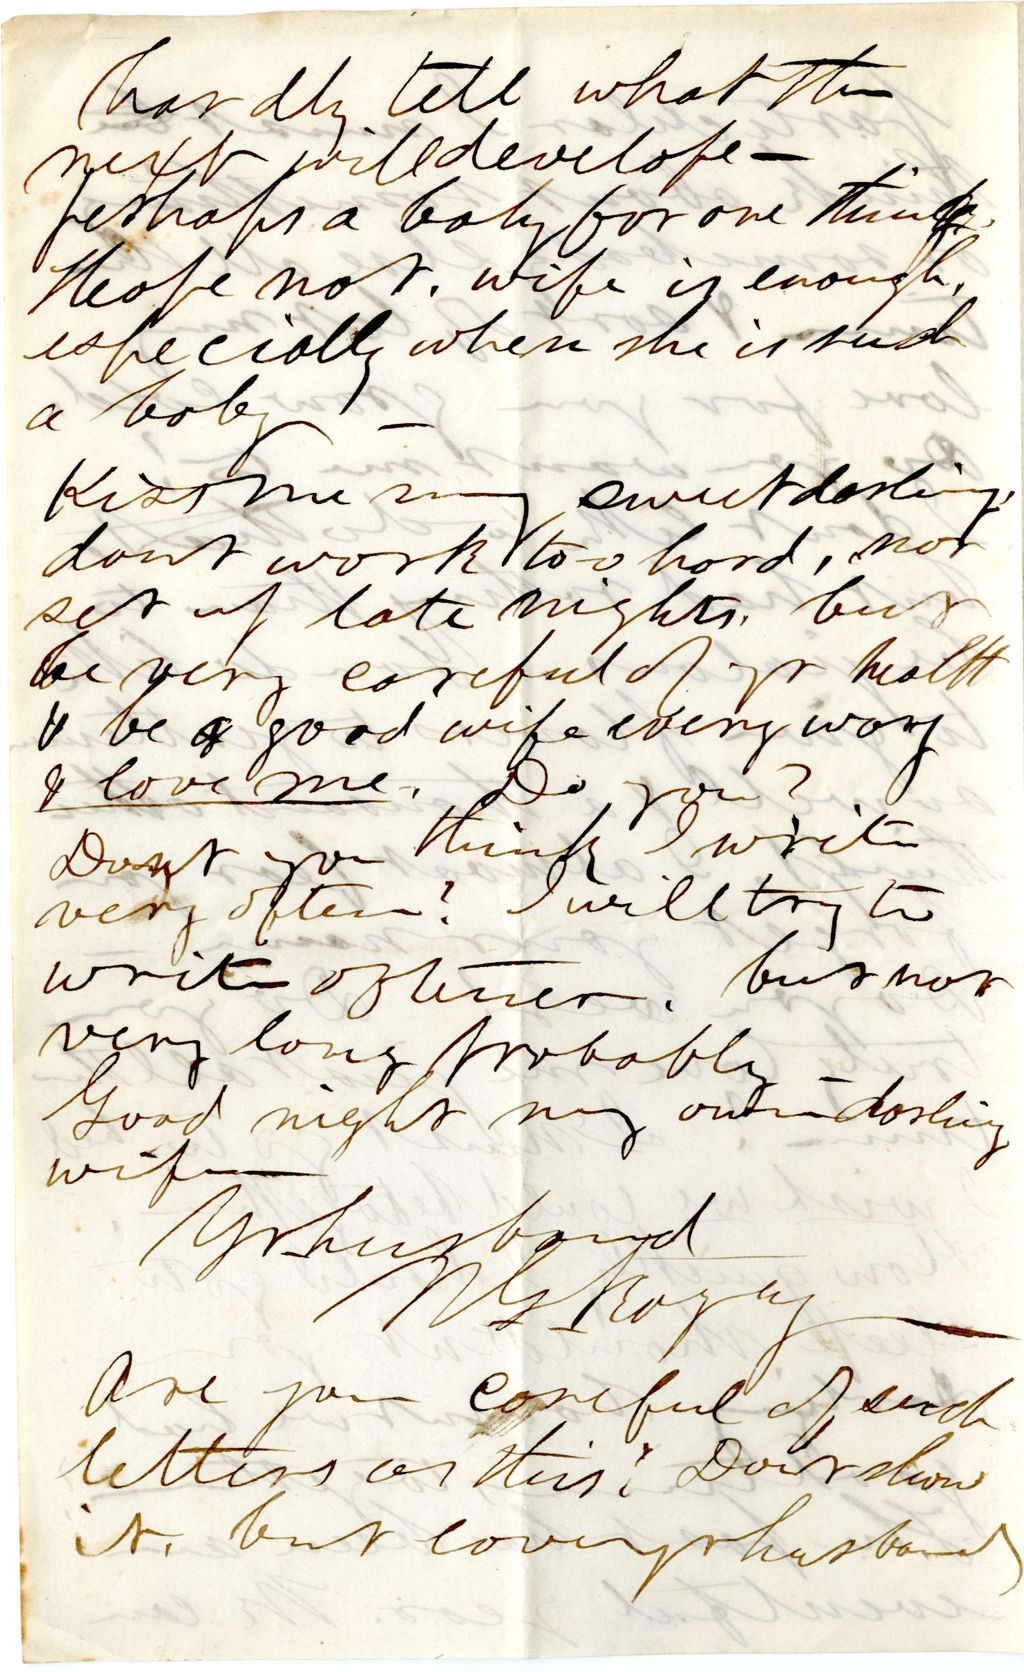 hardly tell what the
next will develope —
perhaps a baby for one thing.
I hope not. wife is enough,
especially when she is such
a baby —
Kiss me my sweet darling,
dont work too hard, nor
set up late nights. but
be very careful of yr health
& be a good wife every way
& love me. Do you?
Dont you think I write
very often? I will try to
write oftener. but not
very long probably
Good night my own darling
wife —
Yr husband

Are you careful of such
letters as this? Dont show
it. but love yr husband